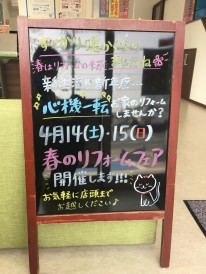 すっかり暖かくなり
春はリフォームの季節
ましたね
新生活、新年度…
心機一転
お家のリフォーム
しませんか？
4月14(土)・15(日)
春のリフォームフェア
開催します!!!
お気軽に店頭まで
お越しください♪